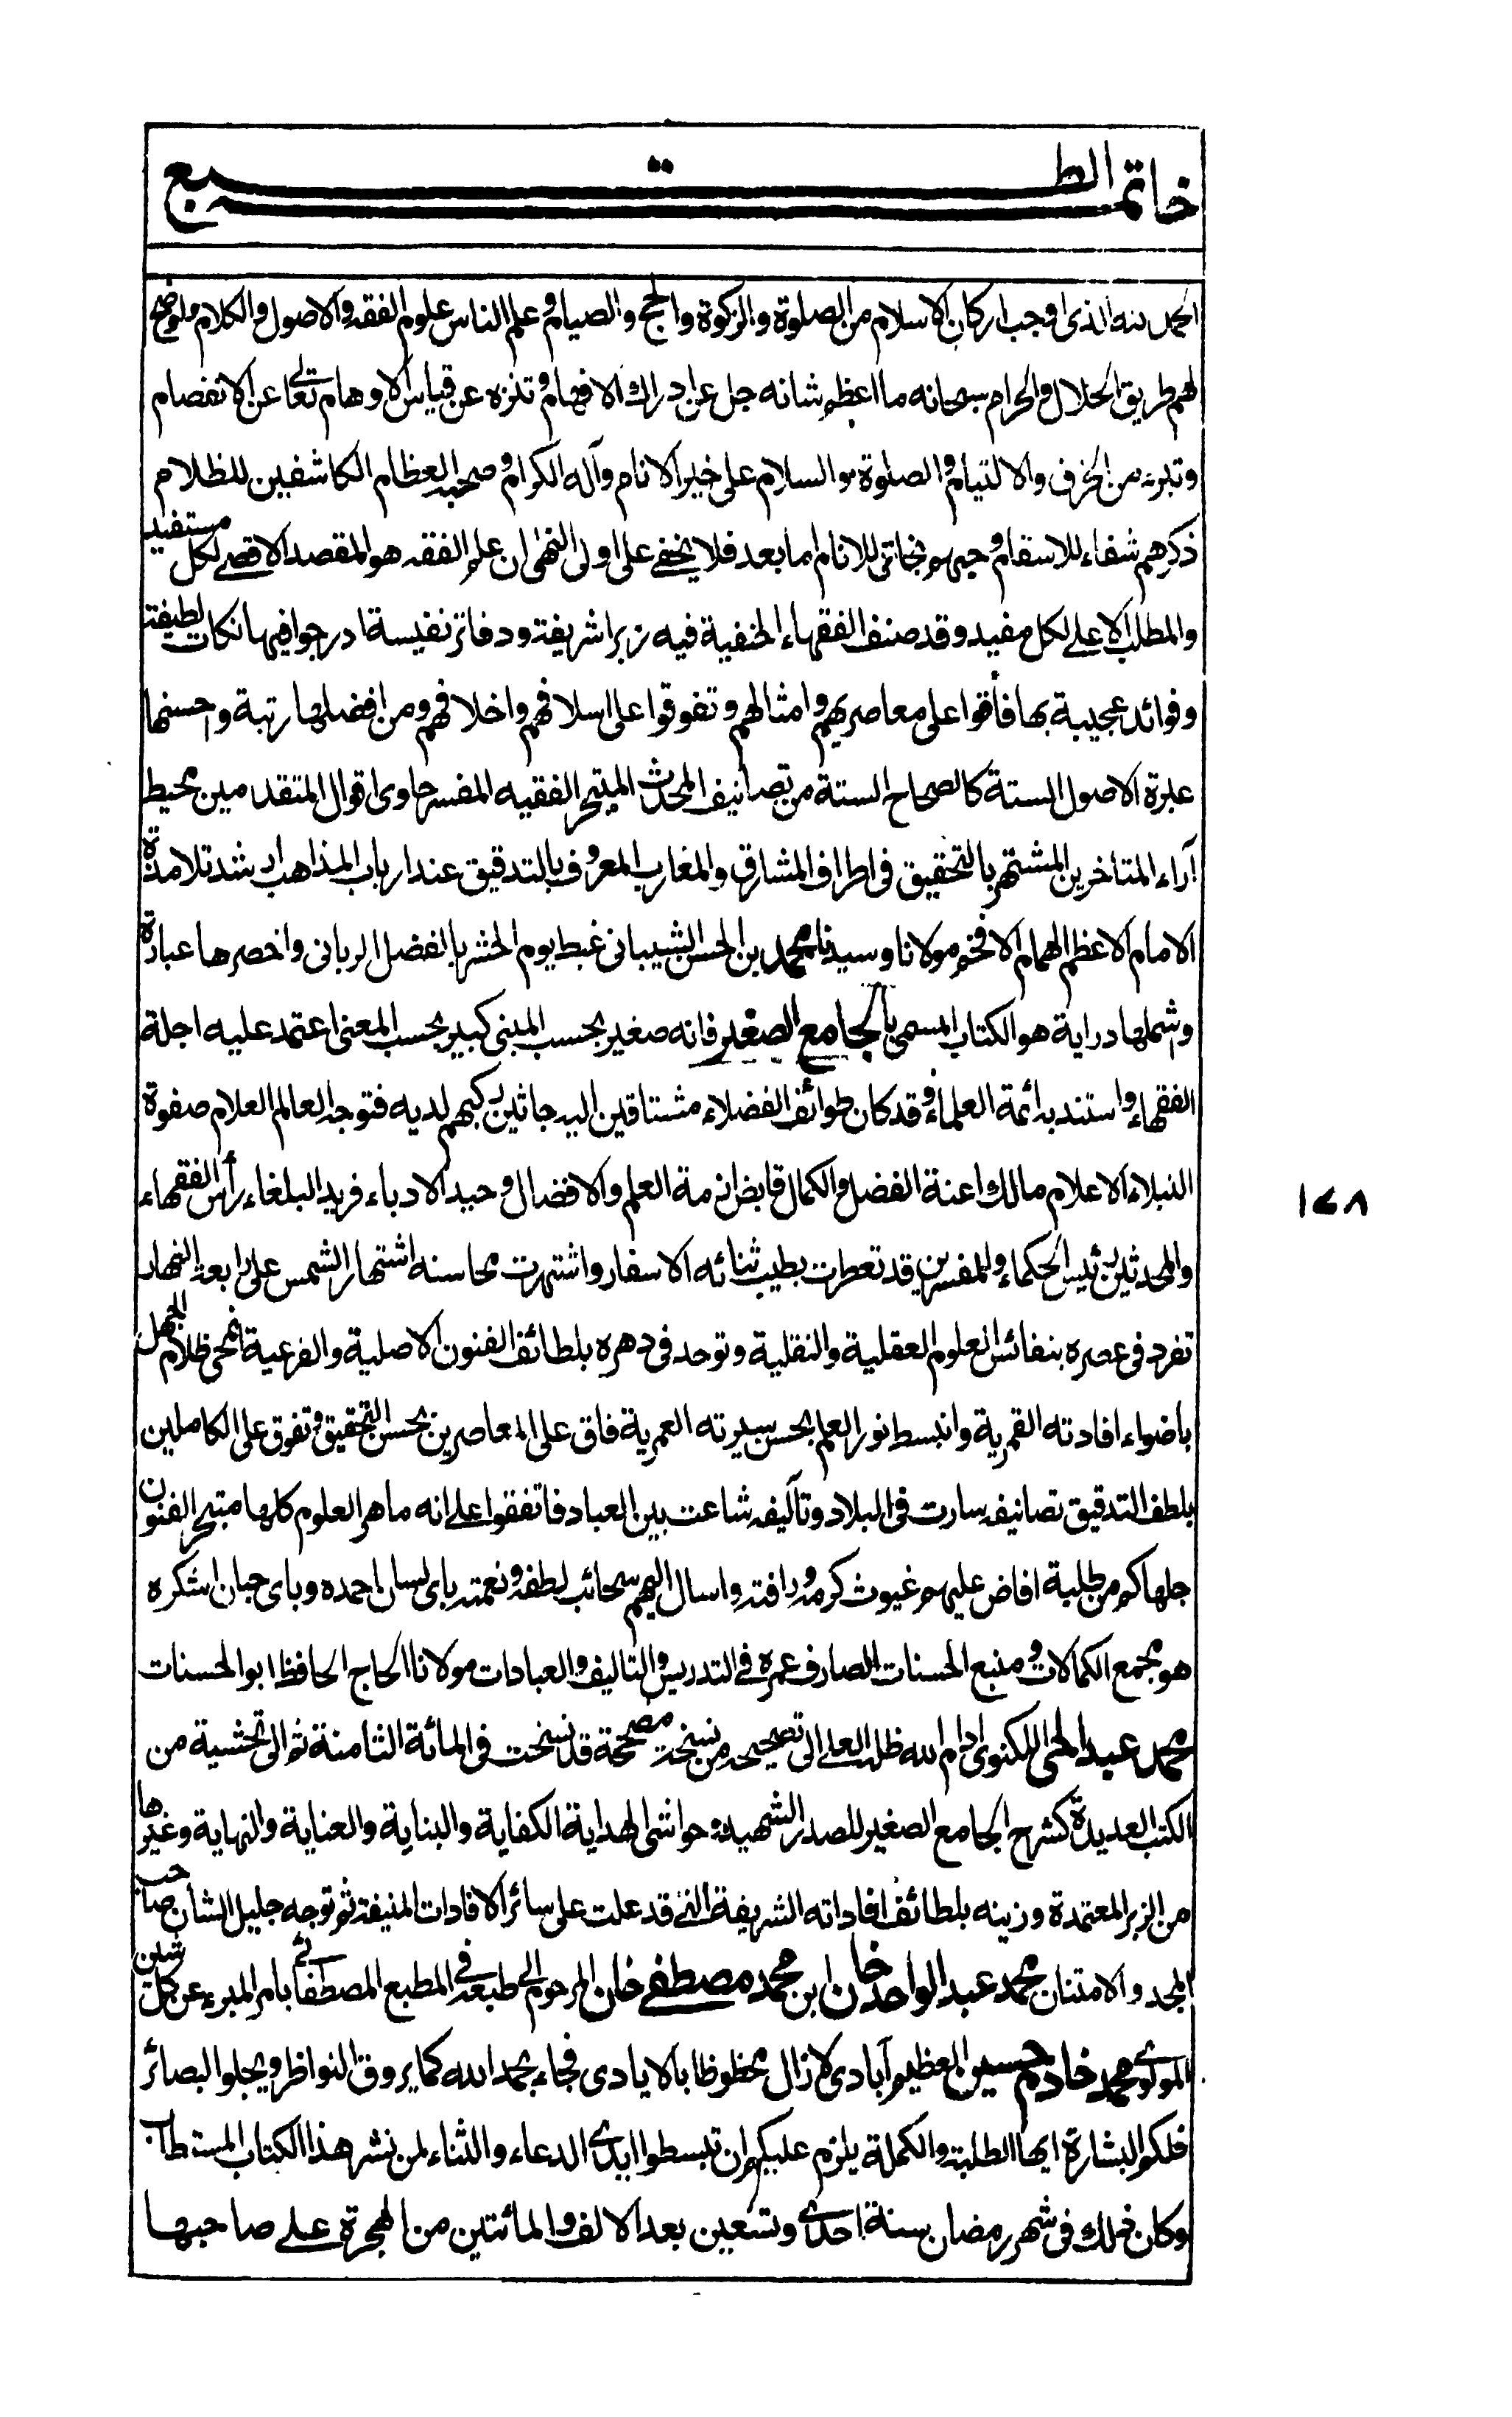 خاتمة الطبع
الحمد لله الذی اوجب ارکان الاسلام من الصلوة والزکوة والحج والصیام وعلم الناس علوم الفقه والاصول والکلام واوضح
لهم طریق الحلال والحرام سبحانه ما اعظم شانه جل عن ادراك الافهام وتنزه عن قیاس الاوهام تعالی عن الانفصام
وتبرء من الخرف والالتیام والصلوة والسلام علی خیر الانام وآله الکرام وصحبه العظام الکاشفین للظلام
ذکرهم شفاء للاسقام وحبهم نجاتی للانام اما بعد فلا یخفی علی اولی النهٰی ان علم الفقه هو المقصد الاقصی لکل مستفید
والمطلب الاعلی لکل مفید وقد صنف الفقهاء الحنفیة فیه زبرا شریفة ودفاتر نفیسة ادرجوا فیها نکات لطیفة
وفوائد عجیبة بها فاقوا علی معاصریهم وامثالهم وتفوقوا علی اسلافهم واخلافهم ومن افضلها رتبة واحسنها
عبرة الاصول الستة کالصحاح الستة من تصانیف المحدث المتبحر الفقیه المفسر حاوی اقوال المتقدمین محیط
آراء المتاخرین المشتهر بالتحقیق فی اطراف المشارق والمغارب المعروف بالتدقیق عند ارباب المذاهب ارشد تلامذة
الامام الاعظم الهمام الافخم مولانا وسیدنا محمد بن الحسن الشیبانی غبط یوم الحشر بالفضل الربانی واخصرها عبارة
واشملها درایة هو الکتاب المسمی بالجامع الصغیر فانه صغیر بحسب المبنی کبیر بحسب المعنی اعتمد علیه اجلة
الفقهاء واستند به ائمة العلماء وقد کان طوائف الفضلاء مشتاقین الیه جاثین رکبهم لدیه فتوجه العالم العلام صفوة
النبلاء الاعلام مالك اعنة الفضل والکمال قابض ازمة العلم والافضال وحید الادباء فرید البلغاء رأس الفقهاء
والمحدثین رئیس الحکماء والمفسرین قد تعطرت بطیب ثنائه الاسفار واشتهرت محاسنه اشتهار الشمس علی رابعة النهار
تفرد فی عصره بنفائس العلوم العقلیة والنقلیة وتوحد فی دهره بلطائف الفنون الاصلیة والفرعیة انمحی ظلام الجهل
باضواء افادته القمریة وانبسط نور العلم بحسن سیرته العمریة فاق علی المعاصرین بحسن التحقیق وتفوق علی الکاملین
بلطف التدقیق تصانیفه سارت فی البلاد وتآلیفه شاعت بین العباد فاتفقوا علی انه ماهر العلوم کلها متبحر الفنون
جلها کم من طلبة افاض علیهم غیوث کرمه ورافته واسال الیهم سحائب لطفه ونعمته بای لسان احمده وبای جنان اشکره
هو مجمع الکمالات ومنبع الحسنات الصارف عمره فی التدریس والتالیف والعبادات مولانا الحاج الحافظ ابو الحسنات
محمد عبد الحی اللکنوی ادام الله ظله العلی الی تصحیحه من نسخة مصححة قد نسخت فی المائة الثامنة ثم الی تحشیة من
الکتب العدیدة کشرح الجامع الصغیر للصدر الشهید وحواشی الهدایة الکفایة والبنایة والعنایة والنهایة وغیرها
من الزبر المعتمدة وزینه بلطائف افاداته الشریفة التی قد علت علی سائر الافادات المنیفة ثم توجه جلیل الشان صاحب
المجد والامتنان محمد عبد الواحد خان ابن محمد مصطفی خان المرحوم الی طبعه فی المطبع المصطفائی بامر المبرء عن کل شین
المولوی محمد خادم حسین العظیم آبادی لازال محظوظا بالایادی فجاء بحمد الله کما یروق النواظر ویجلو البصائر
فلکم البشارة ایها الطلبة والکملة یلزم علیکم ان تبسطوا ایدی الدعاء والثناء لمن نشر هذا الکتاب المستطاب
وکان ذلك فی شهر رمضان سنة احدی وتسعین بعد الالف والمائتین من الهجرة علی صاحبها
۱۷۸